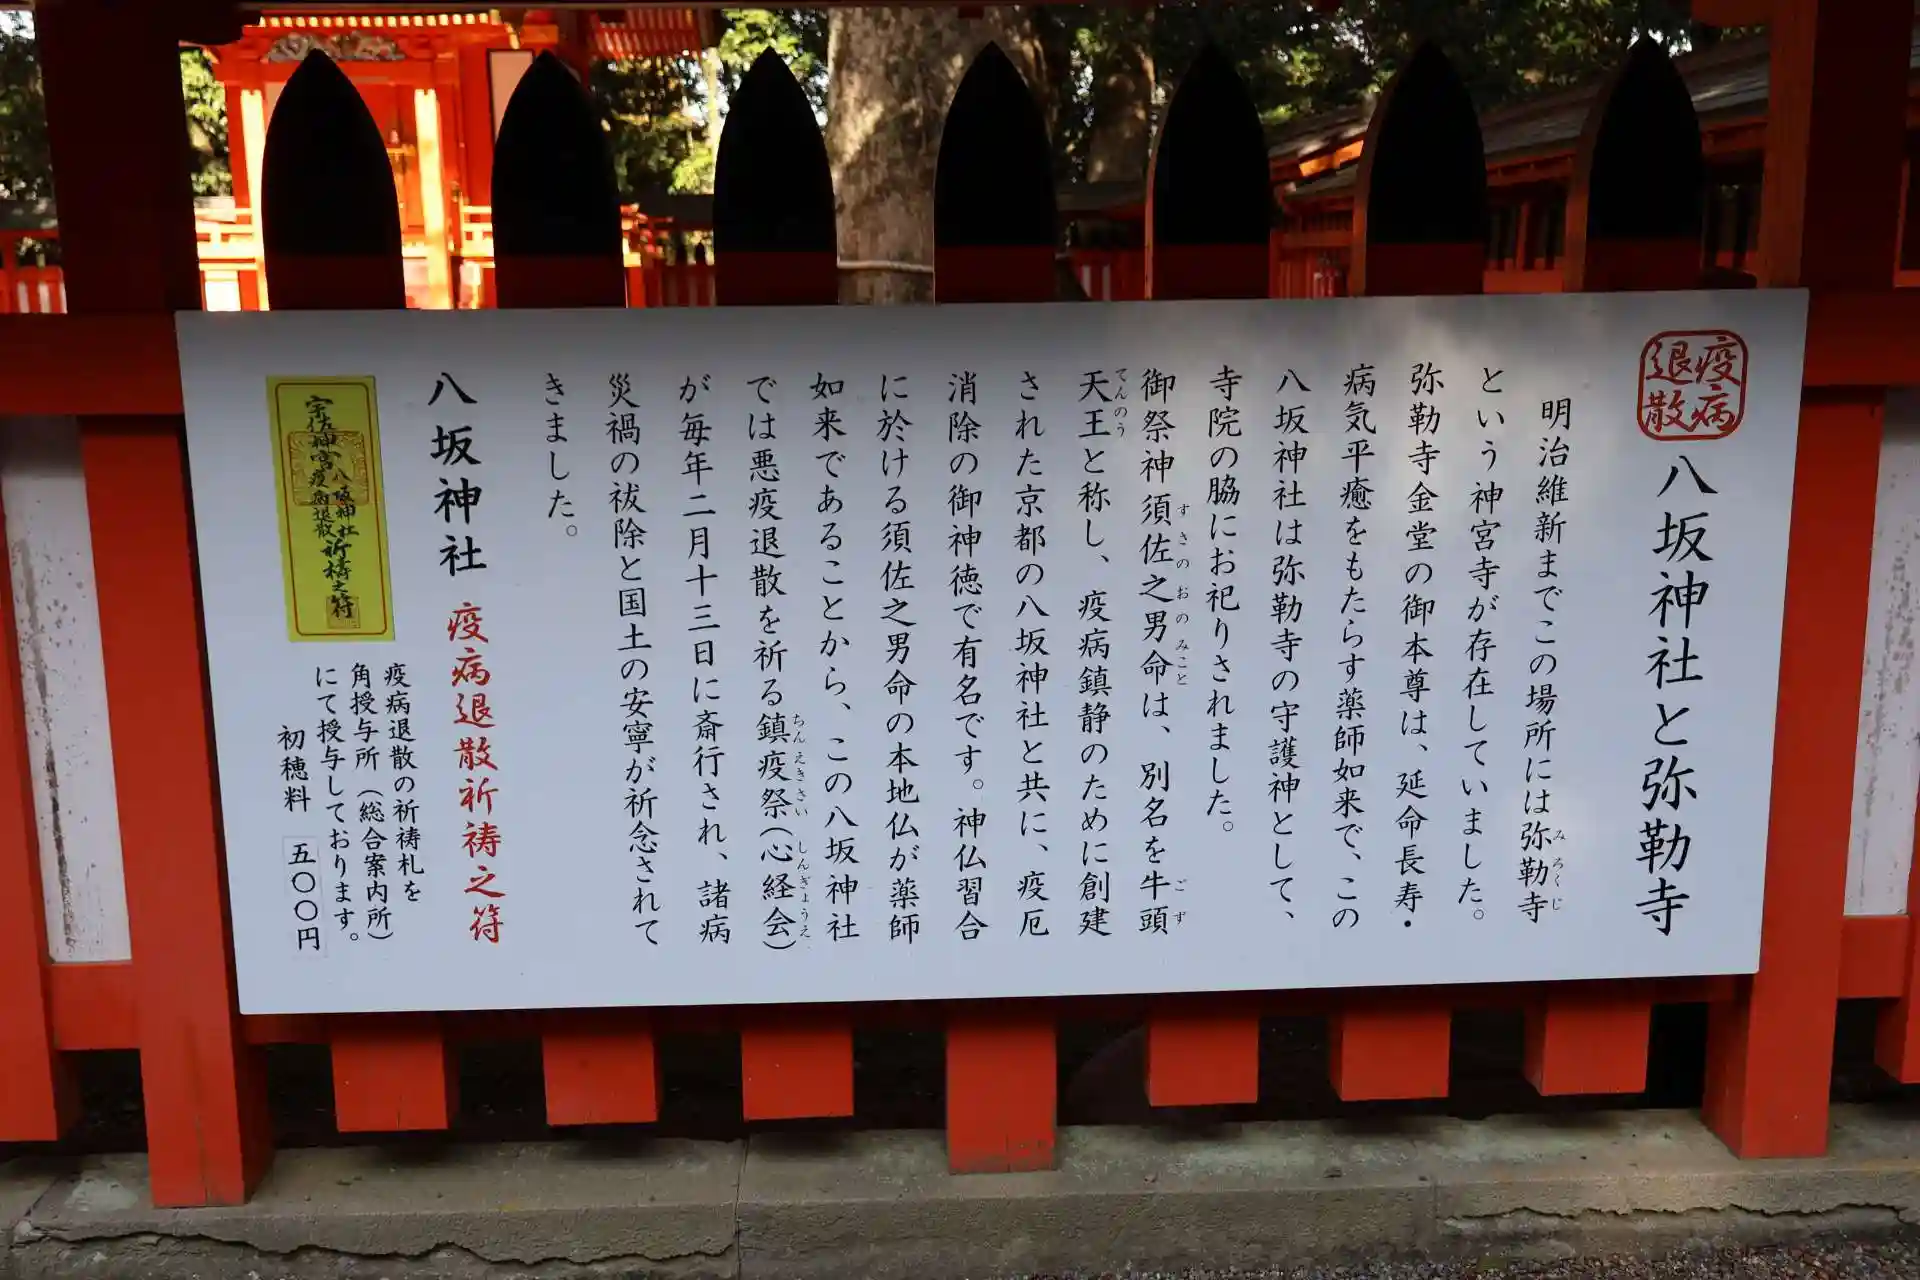 疫病
退散
八坂神社と弥勒寺
明治維新までこの場所には弥勒寺
みろくじ
という神宮寺が存在していました。
弥勒寺金堂の御本尊は、延命長寿・
病気平癒をもたらす薬師如来で、この
八坂神社は弥勒寺の守護神として、
寺院の脇にお祀りされました。
御祭神須佐之男命は、別名を牛頭
すさのおのみこと
ごず
天王と称し、疫病鎮静のために創建
てんのう
された京都の八坂神社と共に、疫厄
消除の御神徳で有名です。神仏習合
に於ける須佐之男命の本地仏が薬師
如来であることから、この八坂神社
では悪疫退散を祈る鎮疫祭(心経会)
ちんえきさい
しんぎょうえ
が毎年二月十三日に斎行され、諸病
災禍の祓除と国土の安寧が祈念されて
きました。
八坂神社
疫病退散祈祷之符
疫病退散の祈祷札を
角授与所(総合案内所)
にて授与しております。
初穂料 五〇〇円
宇佐神宮
八坂神社
疫病退散
祈祷之符